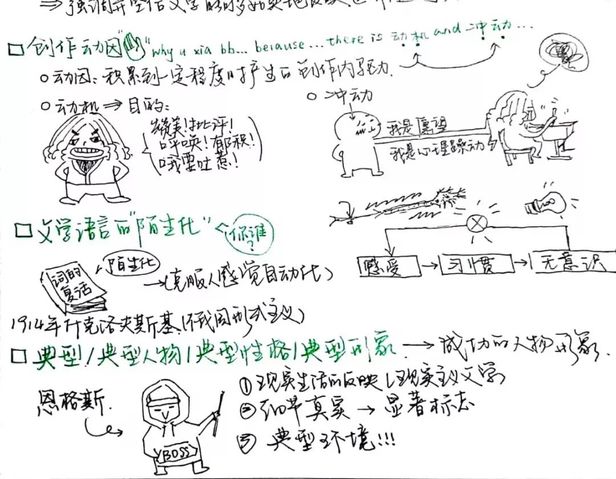 创作动因"why u xia bb... beiause... there is 动机 and 冲动...
动因：积累到一定程度时产生的创作内驱力.
动机 ⇒ 目的：
赞美！批评！
呼唤！郁积！
哦要吐意！
冲动
我是愿望
我是心理躁动
文学语言的"陌生化"
你谁？
词的复活
陌生化
→（克服人感觉自动化）
感受 → 习惯 → 无意识
1914年什克洛夫斯基（俄国形式主义）
典型/典型人物/典型性格/典型形象 → 成功的人物形象.
恩格斯.
BOSS
①现实生活的反映/现实主义文学
②细节真实 → 显著标志
③典型环境!!!